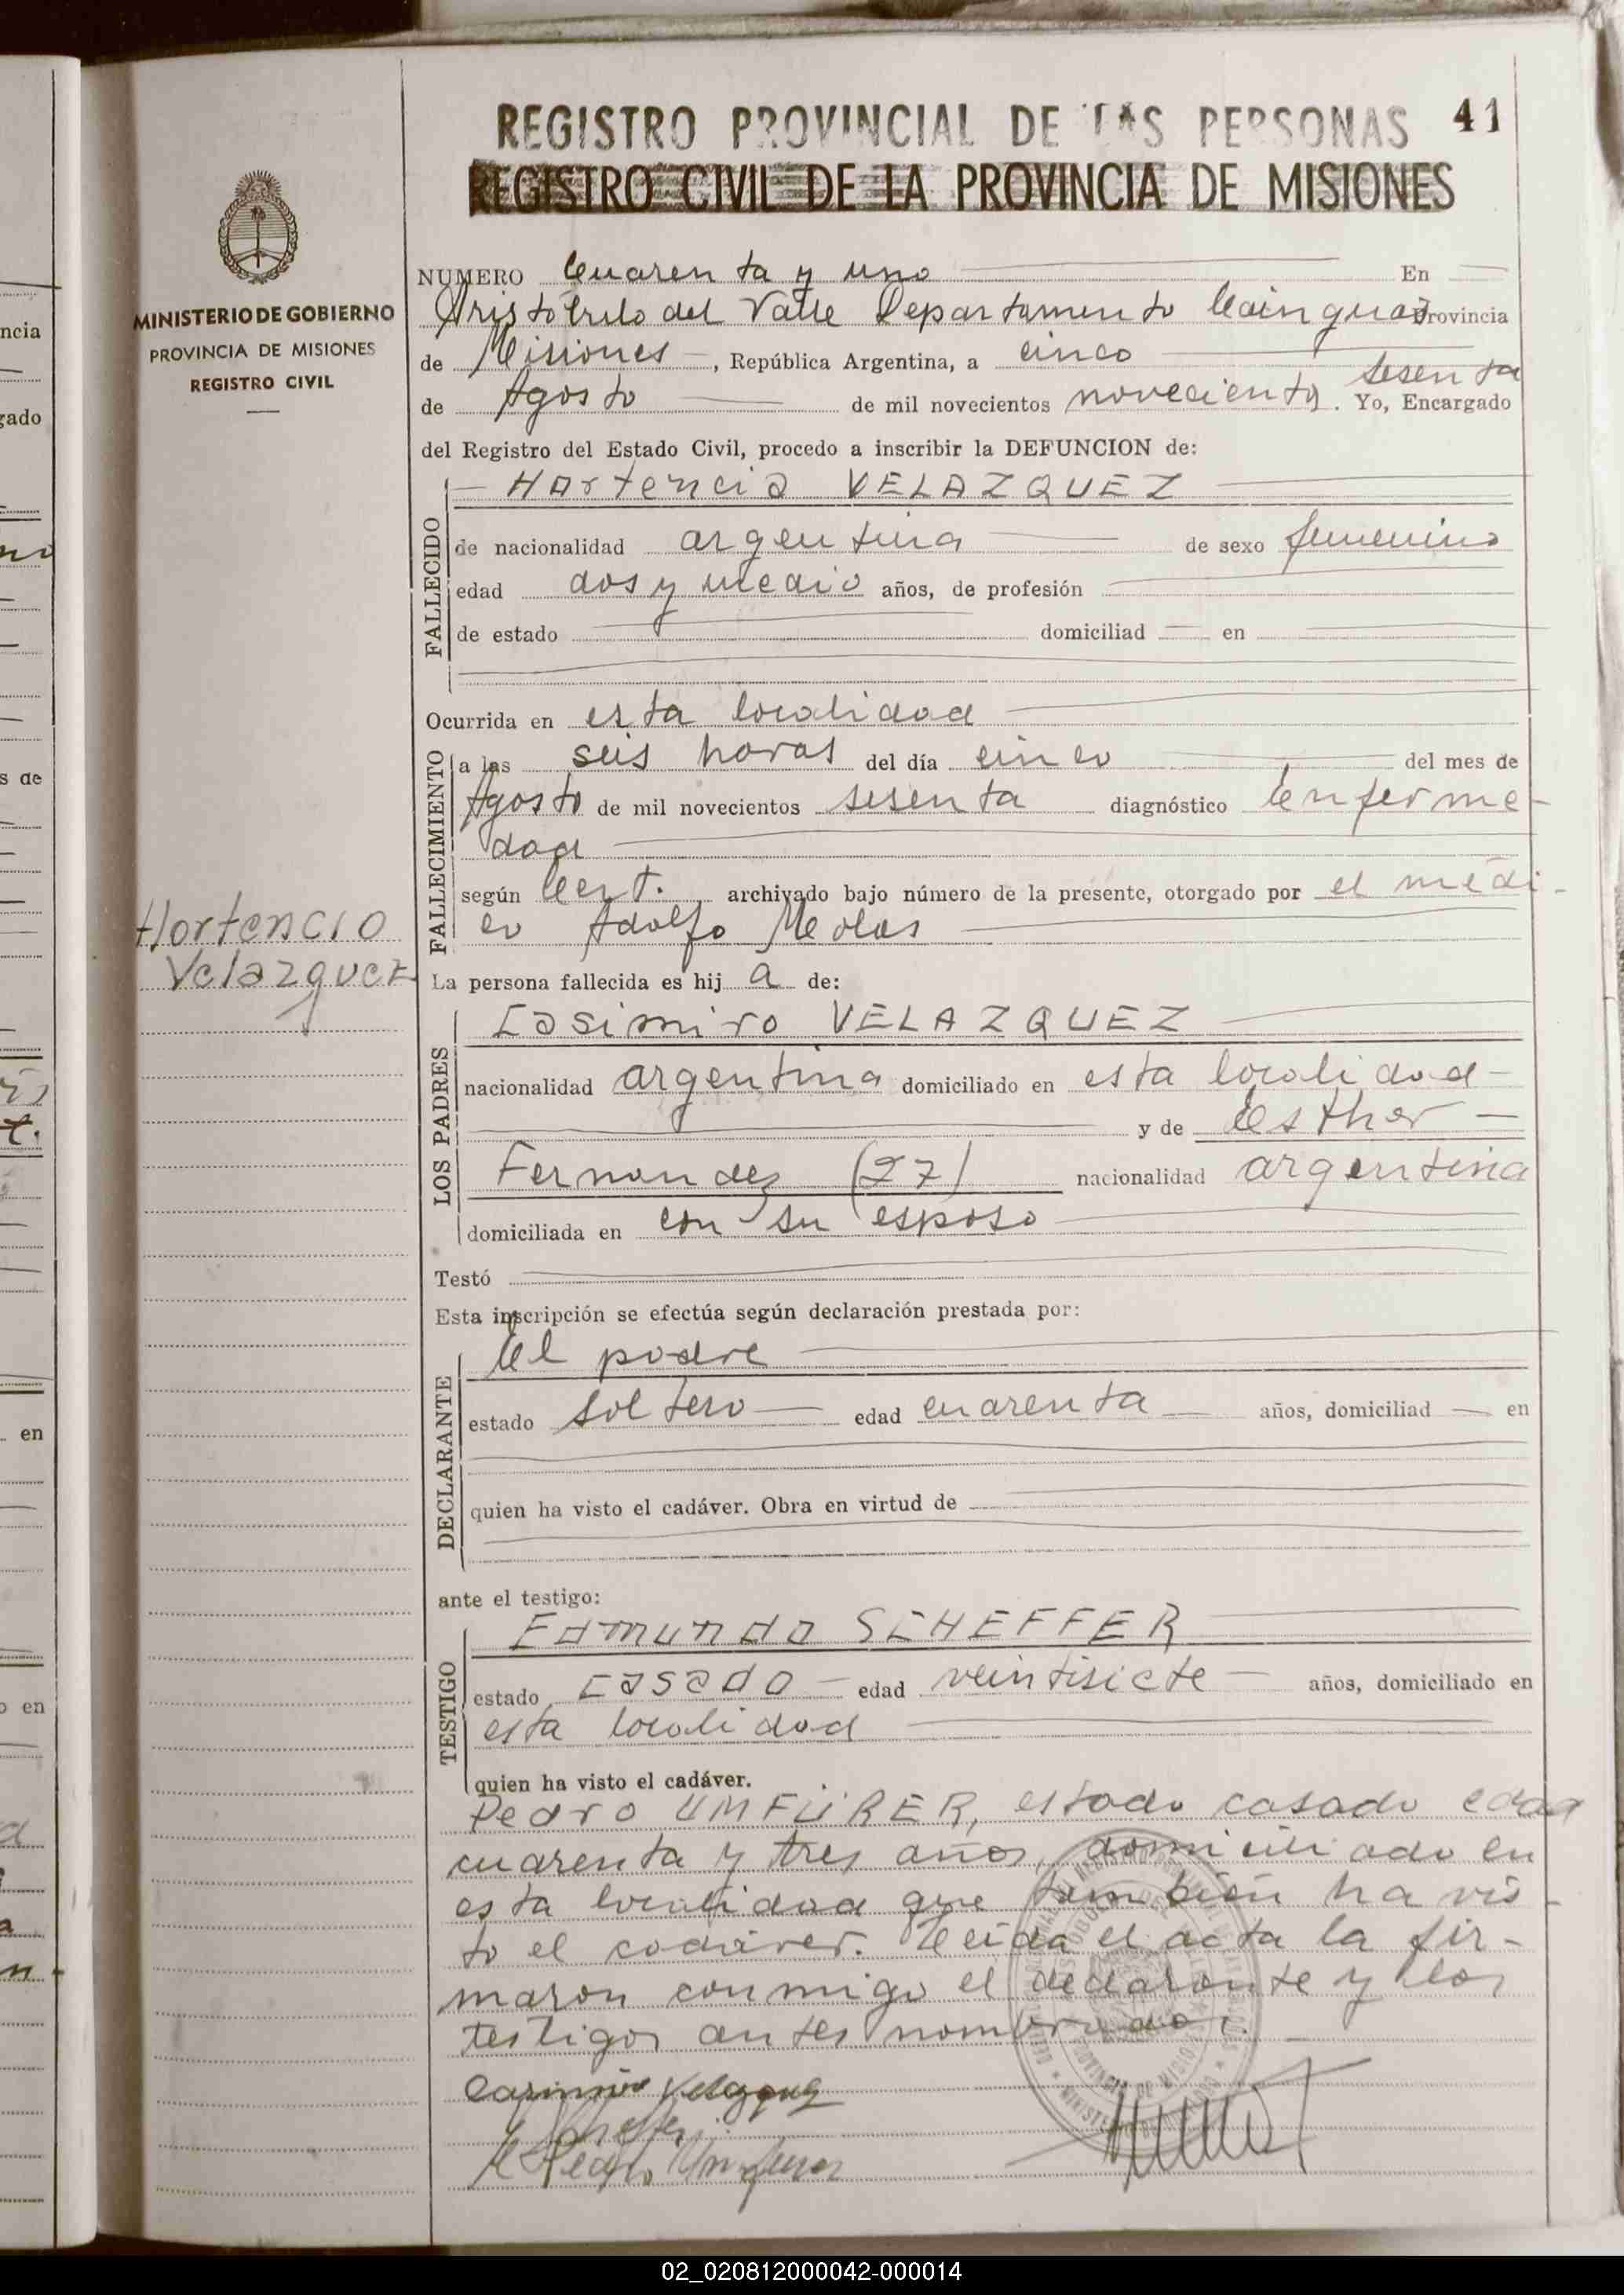 REGISTRO PROVINCIAL DE LAS PERSONAS 41
REGISTRO CIVIL DE LA PROVINCIA DE MISIONES
MINISTERIO DE GOBIERNO
PROVINCIA DE MISIONES
REGISTRO CIVIL
NUMERO Cuarenta y uno En
Aristóbulo del Valle Departamento Cainguas Provincia
de Misiones, República Argentina, a cinco
de Agosto de mil novecientos novecientos sesenta. Yo, Encargado
del Registro del Estado Civil, procedo a inscribir la DEFUNCION de:
Hortencia VELAZQUEZ
FALLECIDO
de nacionalidad argentina de sexo femenino
edad dos y medio años, de profesión
de estado domiciliad en
Ocurrida en esta localidad
FALLECIMIENTO
a las seis horas del día cinco del mes de
Agosto de mil novecientos sesenta diagnóstico Enferme-
dad
según Cert. archivado bajo número de la presente, otorgado por el médi-
co Adolfo
Hortencio
Velazquez
La persona fallecida es hij a de:
LOS PADRES
Casimiro VELAZQUEZ
nacionalidad argentina domiciliado en esta localidad
y de Esther
Fernandez (27) nacionalidad argentina
domiciliada en con su esposo
Testó
Esta inscripción se efectúa según declaración prestada por:
DECLARANTE
El padre
estado soltero edad cuarenta años, domiciliad en
quien ha visto el cadáver. Obra en virtud de
ante el testigo:
TESTIGO
Edmundo SCHEFFER
estado casado edad veintisiete años, domiciliado en
esta localidad
quien ha visto el cadáver.
Pedro UMFÜRER, estado casado edad
cuarenta y tres años, domiciliado en
esta localidad que también ha vis-
to el cadáver. Leída el acta la fir-
maron conmigo el declarante y los
testigos antes nombrados.
Casimiro Velazquez
Pedro Umfurer
ncia
gado
s de
en
o en
02_020812000042-000014